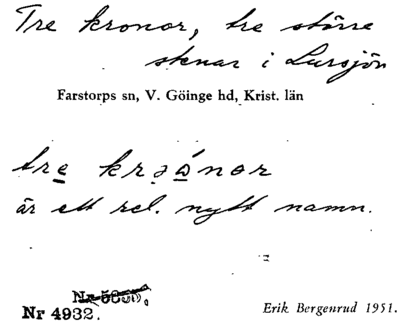 Tre kronor, tre större
stenar i Lursjön
Farstorps sn, V. Göinge hd, Krist. län
tre krɔånor
är ett rel. nytt namn.
Nr 4932.
Erik Bergenrud 1951.